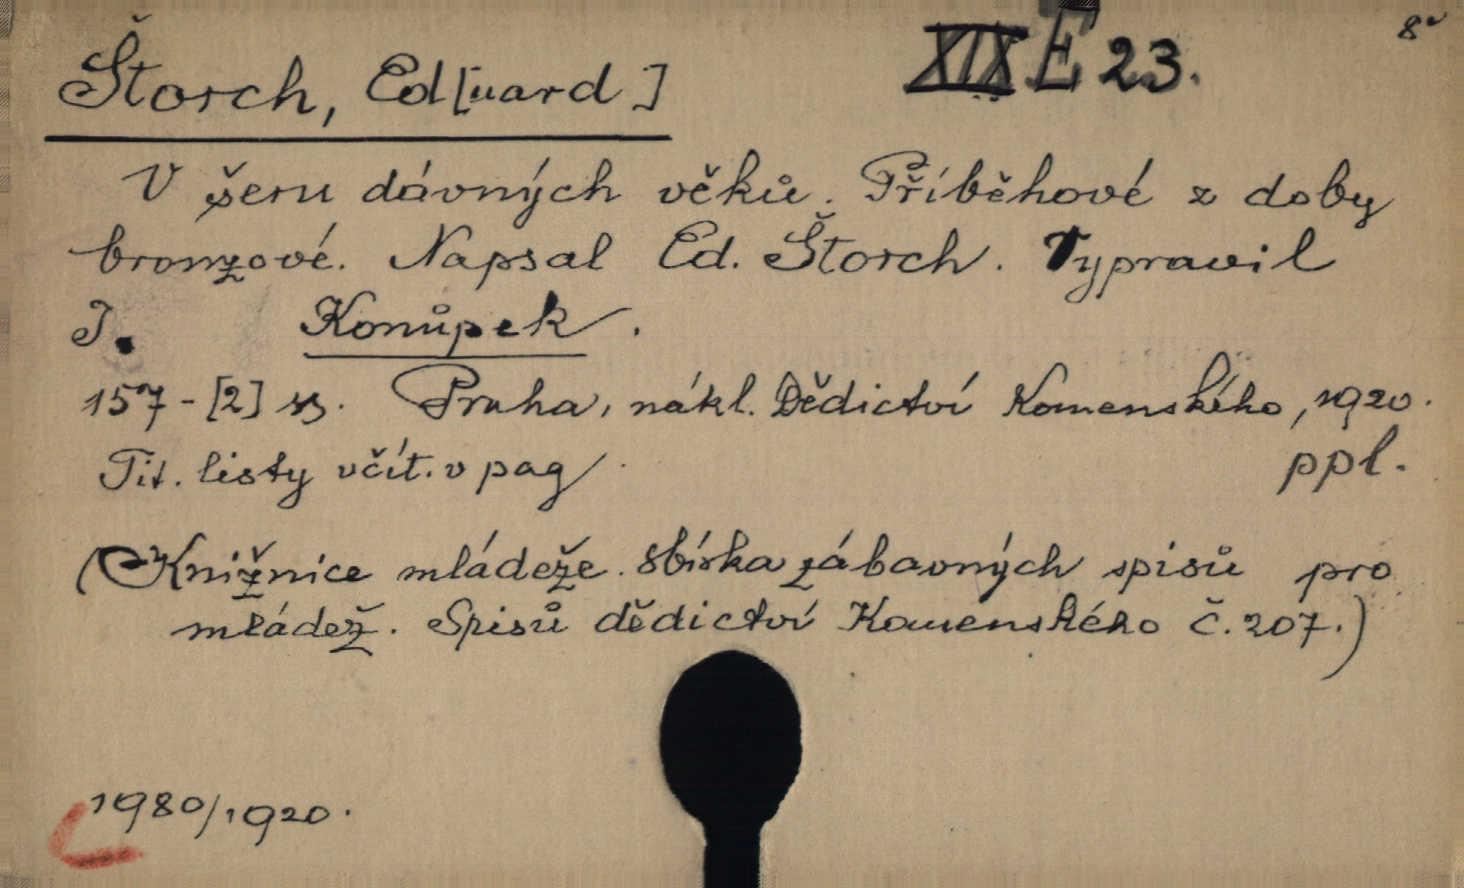 8°
XIX E 23.
Štorch, Ed[uard]
V šeru dávných věků. Příběhové z doby
bronzové. Napsal Ed. Štorch. Vypravil
J. Konůpek.
157-[2] s. Praha, nákl. Dědictví Komenského, 1920.
Tit. listy včít. v pag.
ppl.
(Knižnice mládeže. Sbírka zábavných spisů pro
mládež. Spisů dědictví Komenského č. 207.)
1980/1920.